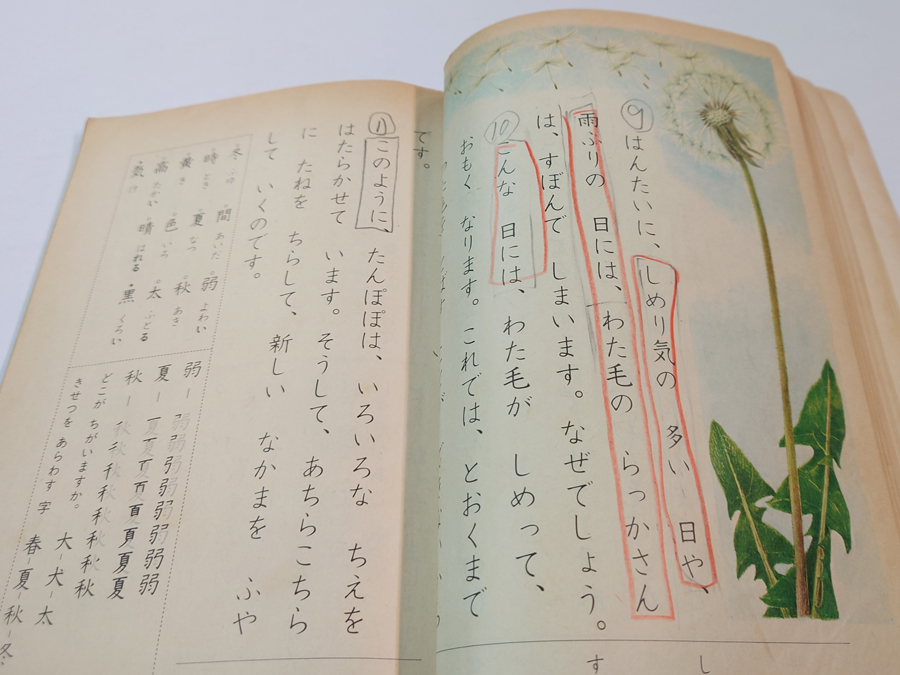 ⑨はんたいに、しめり気の 多い 日や、
雨ふりの 日には、わた毛の らっかさん
は、すぼんで しまいます。なぜでしょう。
⑩こんな 日には、わた毛が しめって、
おもく なります。これでは、とおくまで
です。
⑪このように、たんぽぽは、いろいろな ちえを
はたらかせて います。そうして、あちらこちら
に たねを ちらして、新しい なかまを ふや
して いくのです。
冬 ふゆ 間 あいだ 弱 よわい
時 とき 夏 なつ 秋 あき
黄 き 色 いろ 太 ふとる
高 たかい 晴 はれる 黒 くろい
気 け
弱― 弱弱弱弱弱弱弱
夏― 夏夏百頁夏夏夏
秋― 秋秋秋秋秋秋秋
どこが ちがいますか。 大―犬―太
きせつを あらわす 字 春―夏―秋―冬
し
す